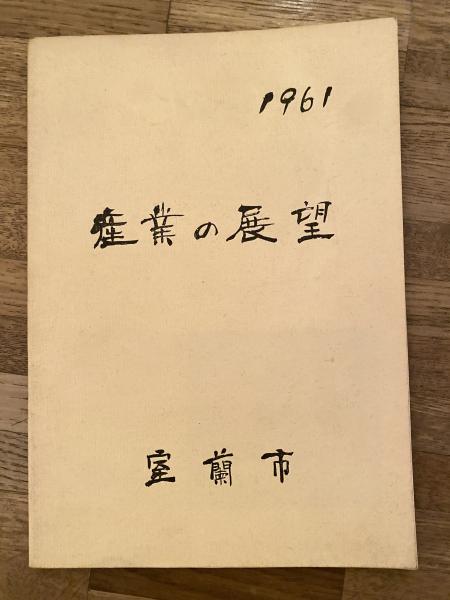 1961
産業の展望
室蘭市